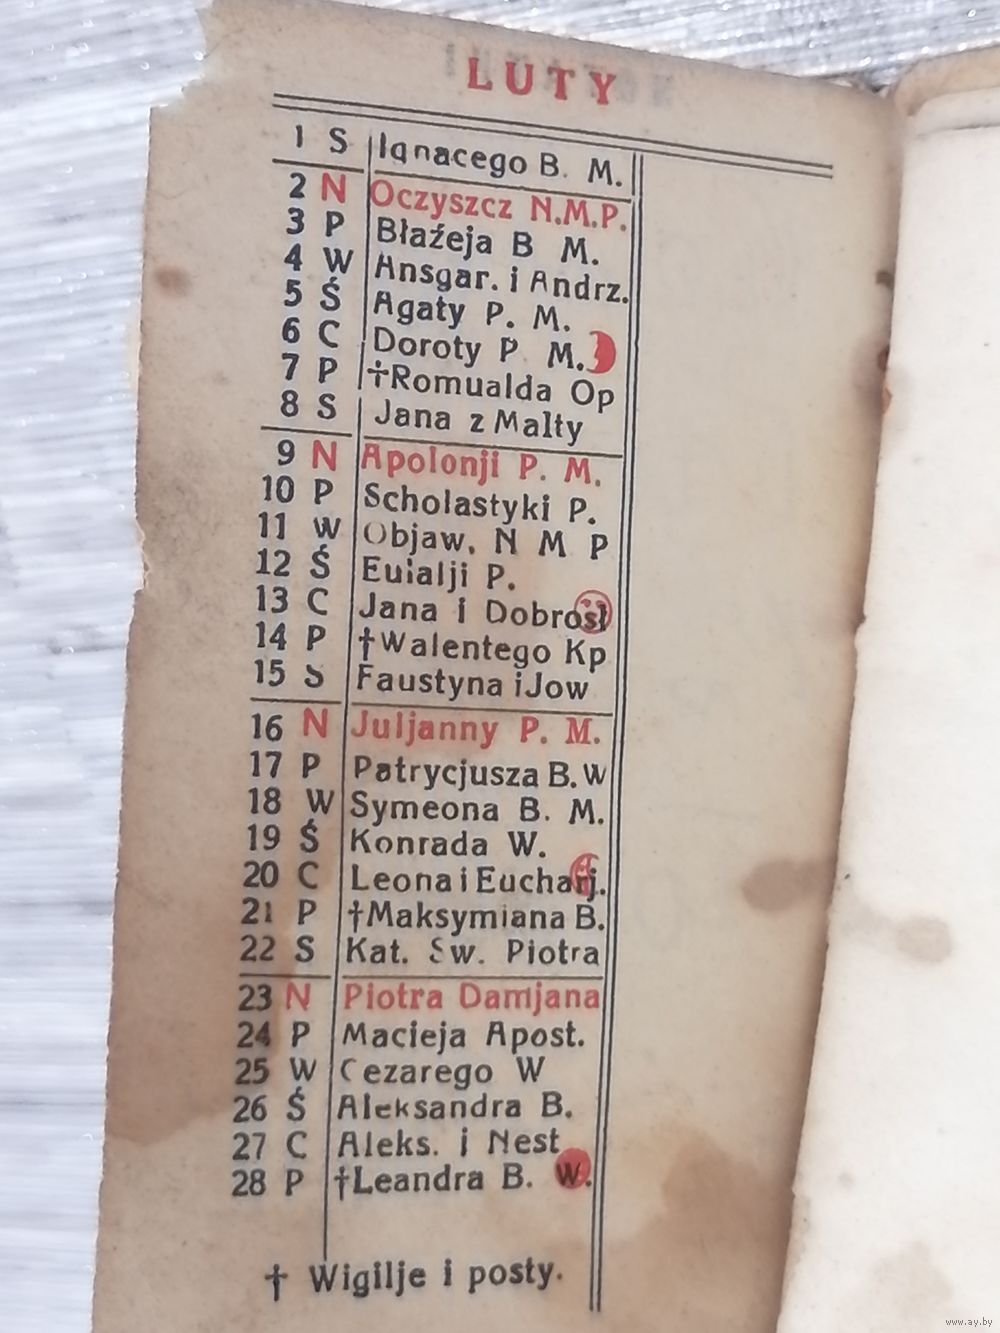 LUTY
1 S Ignacego B. M.
2 N Oczyszcz N.M.P.
3 P Błażeja B M.
4 W Ansgar. i Andrz.
5 Ś Agaty P. M.
6 C Doroty P M.
7 P †Romualda Op
8 S Jana z Malty
9 N Apolonji P. M.
10 P Scholastyki P.
11 W Objaw. N M P
12 Ś Eulalji P.
13 C Jana i Dobrosł
14 P †Walentego Kp
15 S Faustyna i Jow
16 N Juljanny P. M.
17 P Patrycjusza B. W
18 W Symeona B. M.
19 Ś Konrada W.
20 C Leona i Eucharj.
21 P †Maksymiana B.
22 S Kat. Św. Piotra
23 N Piotra Damjana
24 P Macieja Apost.
25 W Cezarego W
26 Ś Aleksandra B.
27 C Aleks. i Nest
28 P †Leandra B. W.
† Wigilje i posty.
www.ay.by